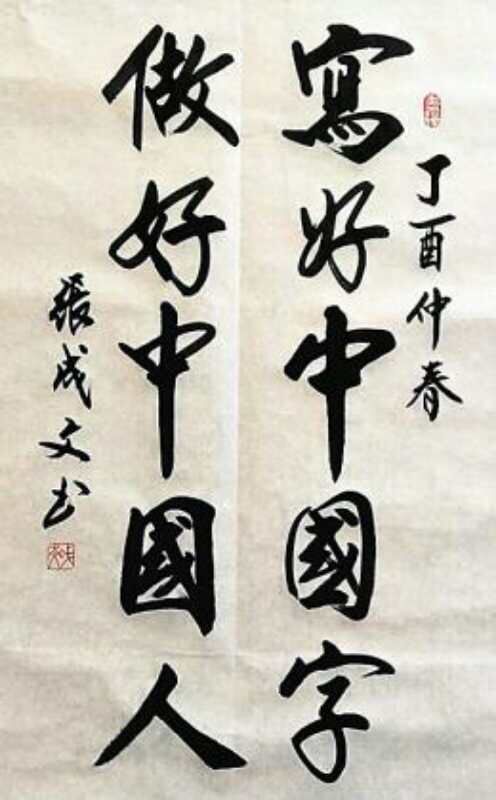 丁酉仲春
寫好中國字
做好中國人
張成文书